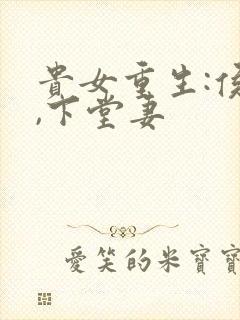 貴女重生:侯
,下堂妻
愛笑的米寶寶